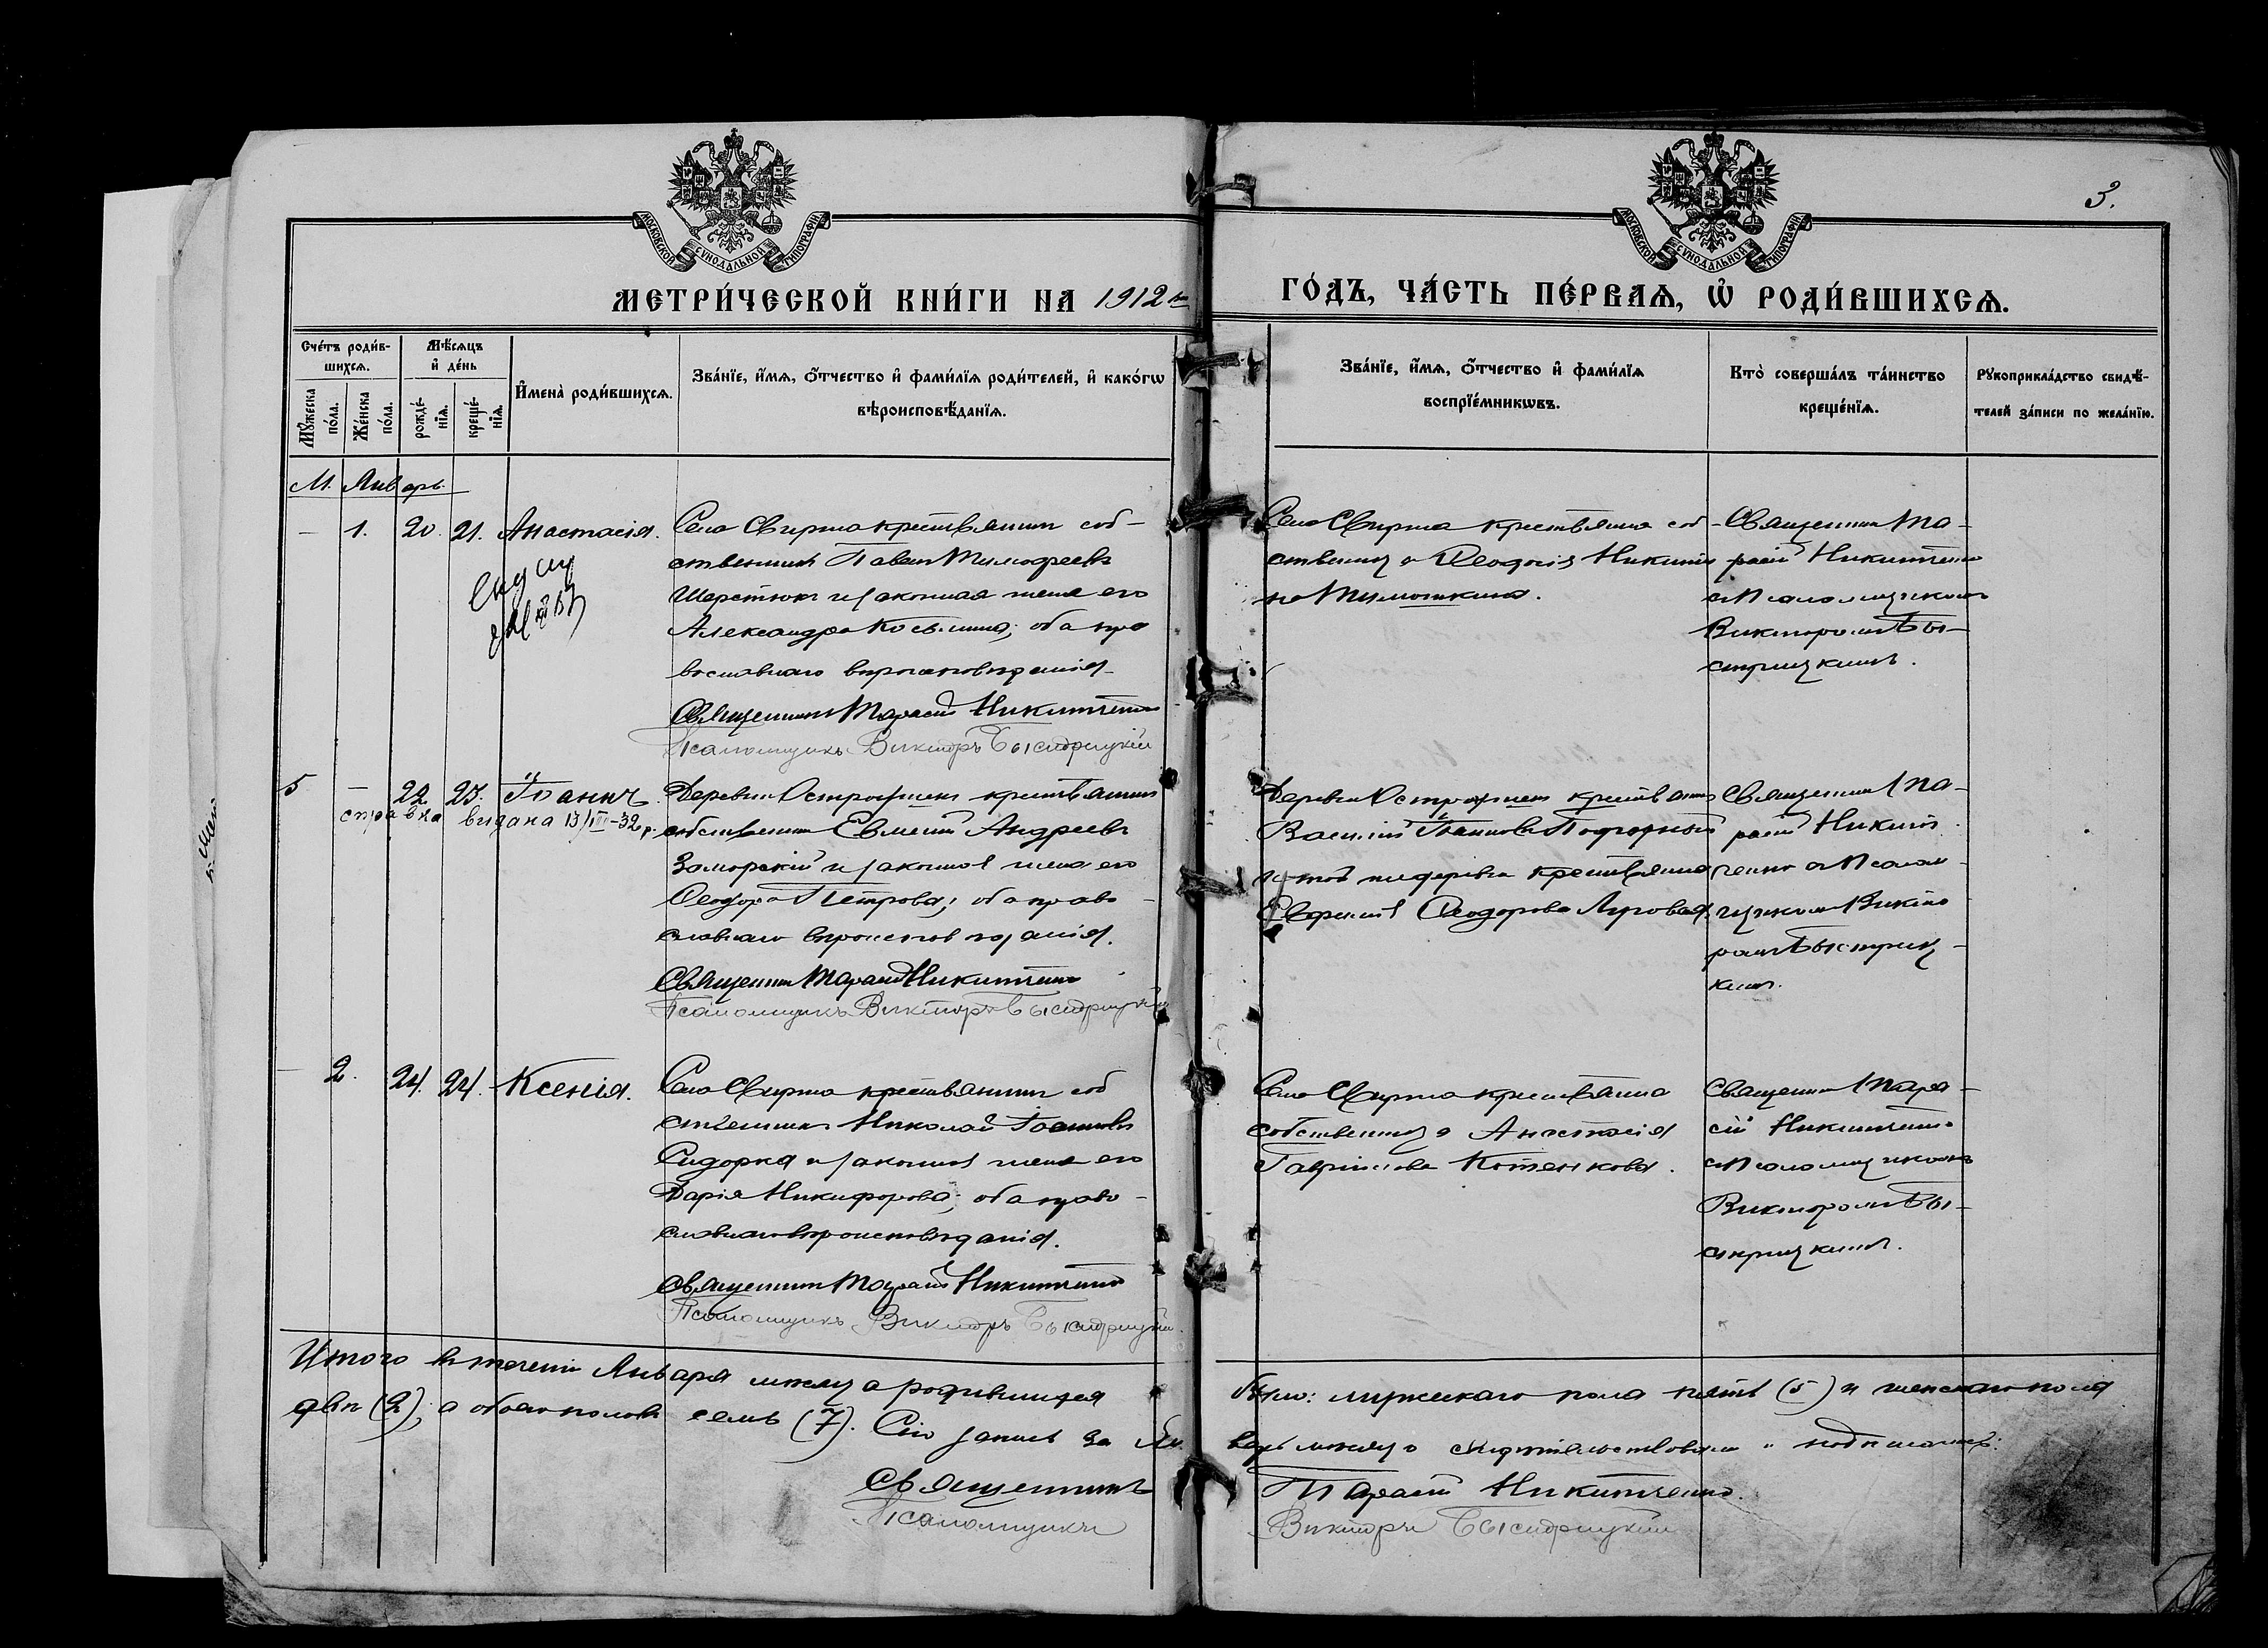 МОСКОВСКОЙ СѴНОДАЛЬНОЙ ТИПОГРАФІИ
МОСКОВСКОЙ СѴНОДАЛЬНОЙ ТИПОГРАФІИ
3.
МЕТРИ́ЧЕСКОЙ КНИ́ГИ НА 1912 ГО́ДЪ, ЧА́СТЬ ПЕ́РВАѦ, Ѡ҆ РОДИ́ВШИХСѦ.
Сче́тъ роди́в-
шихсѧ.
Мꙋ́жеска
по́ла.
Же́нска
по́ла.
Мѣ́сѧцъ
и҆ де́нь
рожде́-
нїѧ.
креще́-
нїѧ.
И҆мена̀ роди́вшихсѧ.
Зва́нїе, и҆́мѧ, ѻ҆́тчество и҆ фами́лїѧ роди́телей, и҆ како́гѡ
вѣроисповѣ́данїѧ.
Зва́нїе, и҆́мѧ, ѻ҆́тчество и҆ фами́лїѧ
воспрїе́мникѡвъ.
Кто̀ соверша́лъ та́инство
креще́нїѧ.
Рꙋкоприкла́дство свидѣ́-
телей за́писи по жела́нїю.
М. Январь.
— 1. 20. 21. Анастасія.
Село Свирма крестьянинъ соб-
ственникъ Павелъ Тимофеевъ
Шерстюкъ и законная жена его
Александра Косьмина; оба пра
вославнаго вѣроисповѣданія.
Священникъ Тарасій Никитченко
Псаломщикъ Викторъ Быстрицкій
Село Свирма крестьянка соб-
ственница Ѳеодосія Никити
на Тимошкина.
Священникъ Та-
расій Никитченко
съ псаломщикомъ
Викторомъ Бы-
стрицкимъ.
5 — 22 23. Іоаннъ.
справка видана 13/III-32 р.
крестьянинъ
собственникъ Евменій Андреевъ
Заморскій и законная жена его
Ѳеодора Петрова; оба право-
славнаго вѣроисповѣданія.
Священникъ Тарасій Никитченко
Псаломщикъ Викторъ Быстрицкій
крестьянинъ
Василій Іоанновъ Подгорный
и той же деревни крестьянка
Ѳеодорова Луговая
Священникъ Та-
расій Никит
ченко съ псалом-
щикомъ Викто
ромъ Быстриц-
кимъ.
— 2. 24. 24. Ксенія.
Село Свирма крестьянинъ соб
ственникъ Николай Іоанновъ
Сидорка и законная жена его
Дарія Никифорова; оба право-
славнаго вѣроисповѣданія.
Священникъ Тарасій Никитченко
Псаломщикъ Викторъ Быстрицкій
Село Свирма крестьянка
собственница Анастасія
Гавріилова Котенкова.
Священникъ Тара-
сій Никитченко
съ псаломщикомъ
Викторомъ Бы-
стрицкимъ.
Итого въ теченіи Января месяца родившихся было: мужескаго пола пять (5) и женскаго пола
двѣ (2); а обоего половъ семь (7). Сію запись за Январь месяцъ свидѣтельствовали и подписались:
Священникъ Тарасій Никитченко.
Псаломщикъ Викторъ Быстрицкій